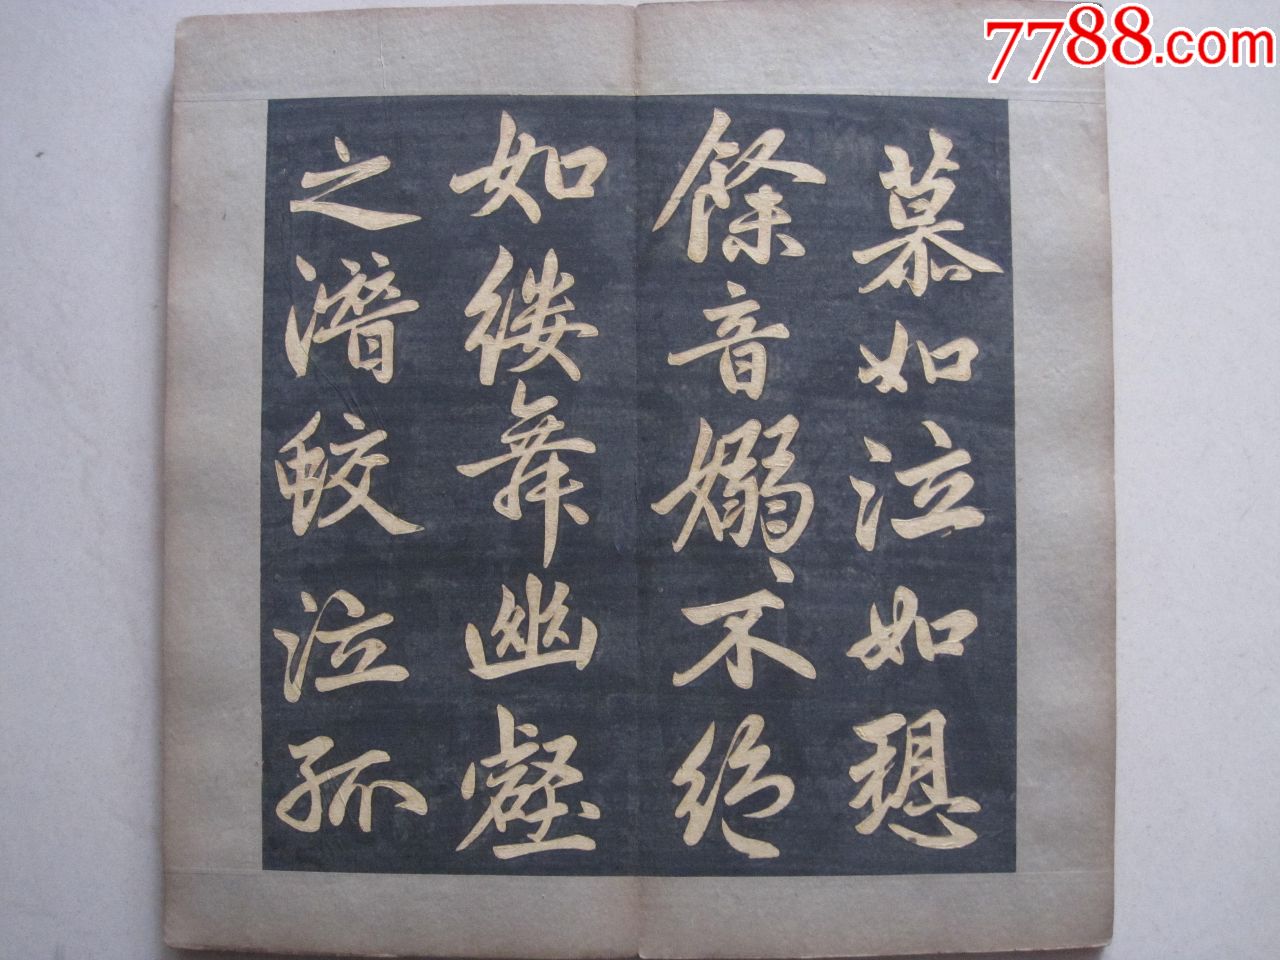 7788.com
慕如泣如愬
餘音嫋〻不絕
如縷舞幽壑
之潛蛟泣孤